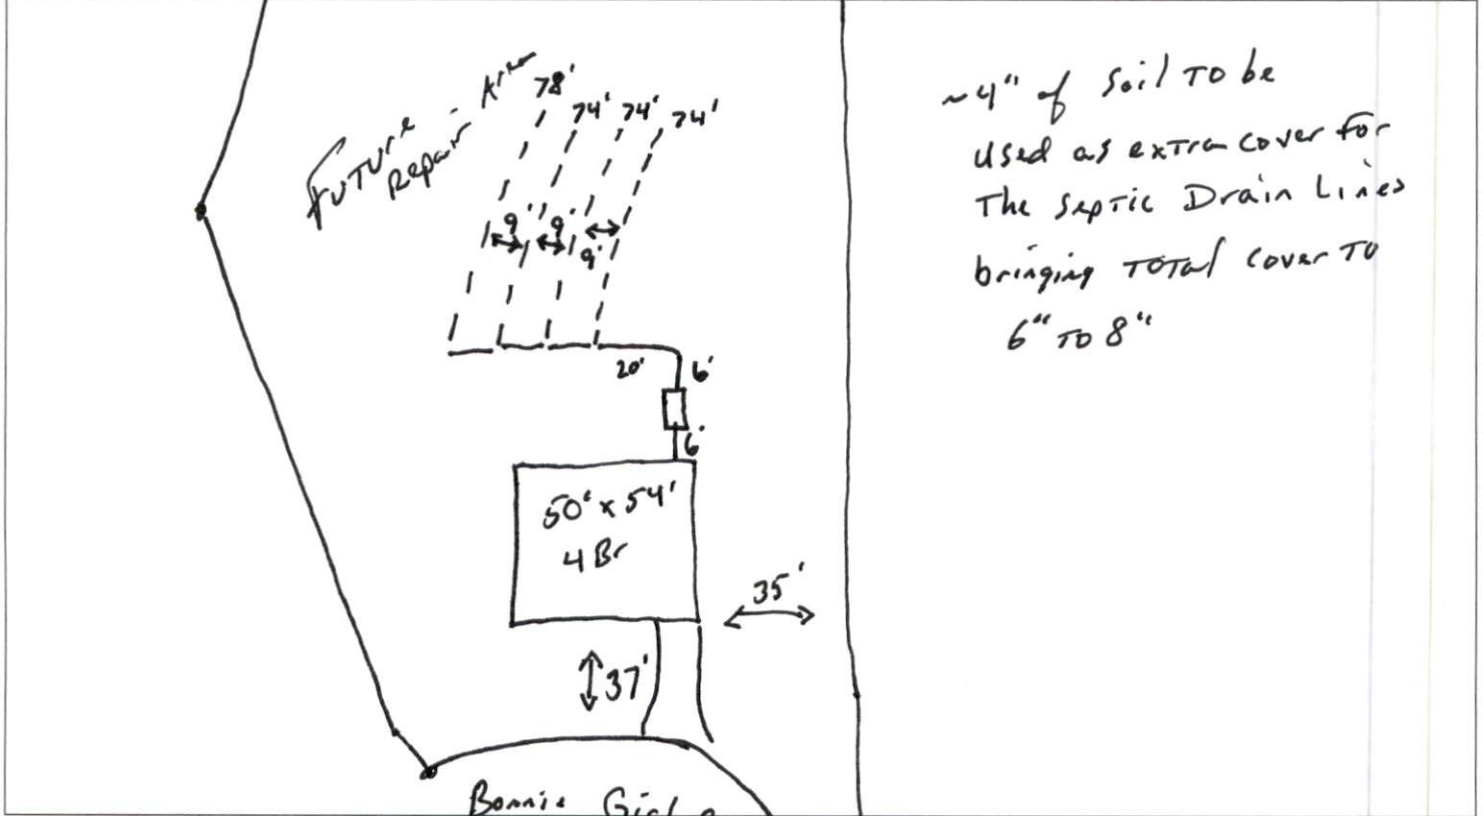 Future
Repair Area
78'
74' 74' 74'
9' 9'
9'
20' 6'
6'
50' x 54'
4 Br
35'
37'
Bonnie
~4" of Soil TO be
Used as extra cover for
The Septic Drain Lines
bringing TOTal cover TO
6" TO 8"